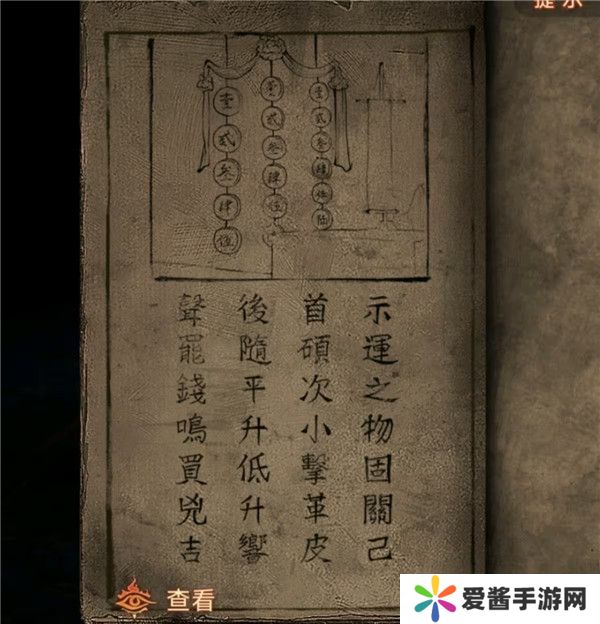 提示
壹
貳
叁
肆
伍
壹
貳
叁
肆
伍
壹
貳
叁
肆
伍
陆
示運之物固關己
首碩次小擊革皮
後隨平升低升響
聲罷錢鳴買兇吉
查看
爱酱手游网